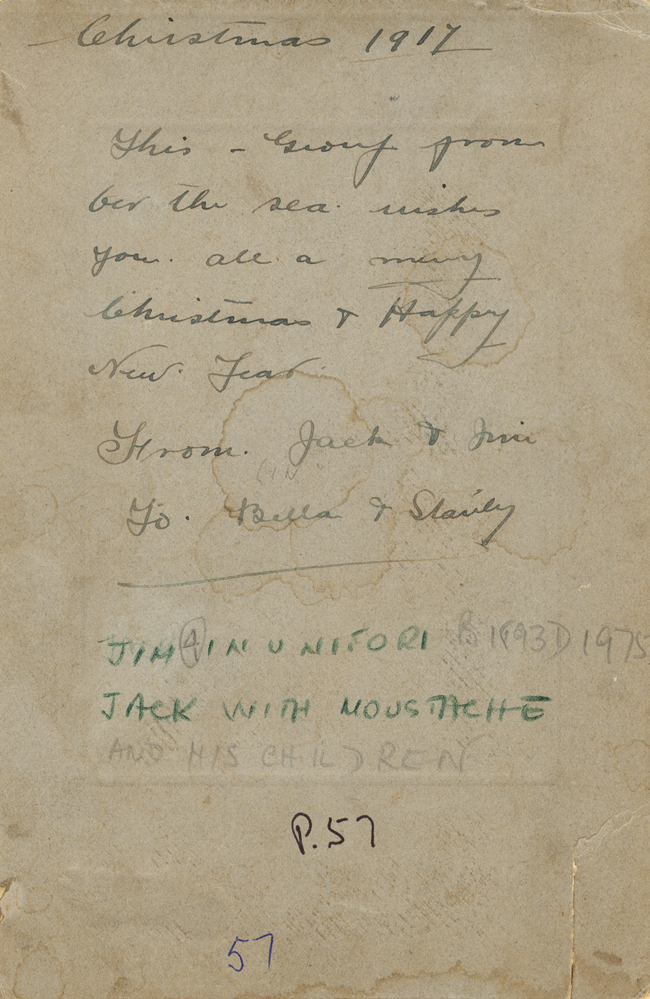 Christmas 1917
This - Group from
over the sea. wishes
you. all a merry
Christmas & Happy
New. Year.
From. Jack & Jim
To. Bella & Stanley
JIM A IN UNIFORM B 1893 D 1975
JACK WITH MOUSTACHE
AND HIS CHILDREN
P.57
57